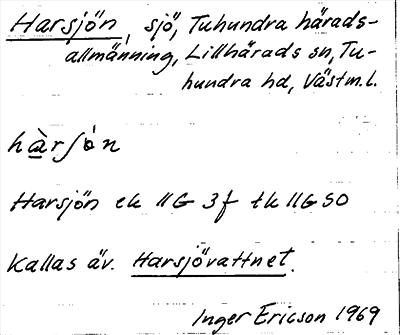 Harsjön, sjö, Tuhundra härads-
allmänning, Lillhärads sn, Tu-
hundra hd, Västm.l.
hàrʃòn
Harsjön ek 11G 3f tk 11G SO
Kallas äv. Harsjövattnet.
Inger Ericson 1969